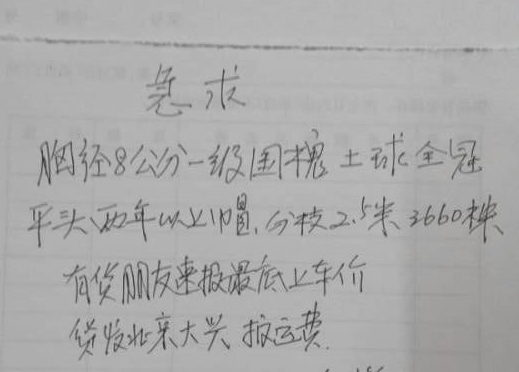 急求
胸径8公分一级国槐土球全冠
平头、两年以上帽,分枝2.5米、3660株
有货朋友速报最底上车价
货发北京大兴、报运费.